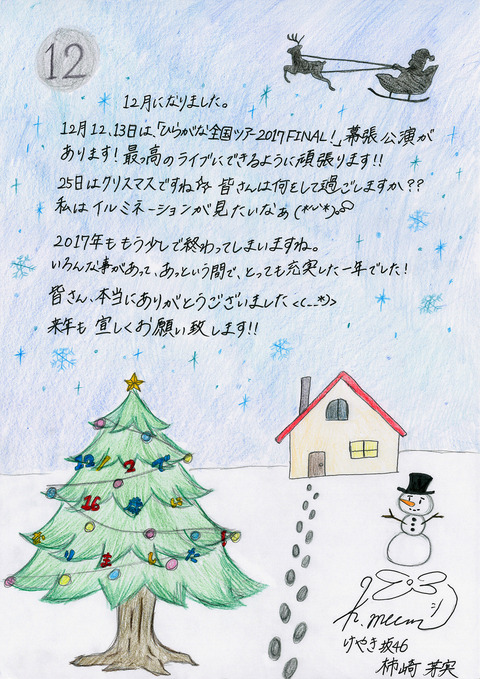 12
12月になりました。
12月12、13日は、「ひらがな全国ツアー2017FINAL!」幕張公演が
あります! 最っ高のライブにできるように頑張ります!!
25日はクリスマスですね☆ 皆さんは何をして過ごしますか??
私はイルミネーションが見たいなぁ(*'-'*)。
2017年ももう少しで終わってしまいますね。
いろんな事があって、あっという間で、とっても充実した一年でした!
皆さん、本当にありがとうございました<(_ _*)>
来年も宜しくお願い致します!!
12/7で
16
りました
けやき坂46
柿崎 芽実